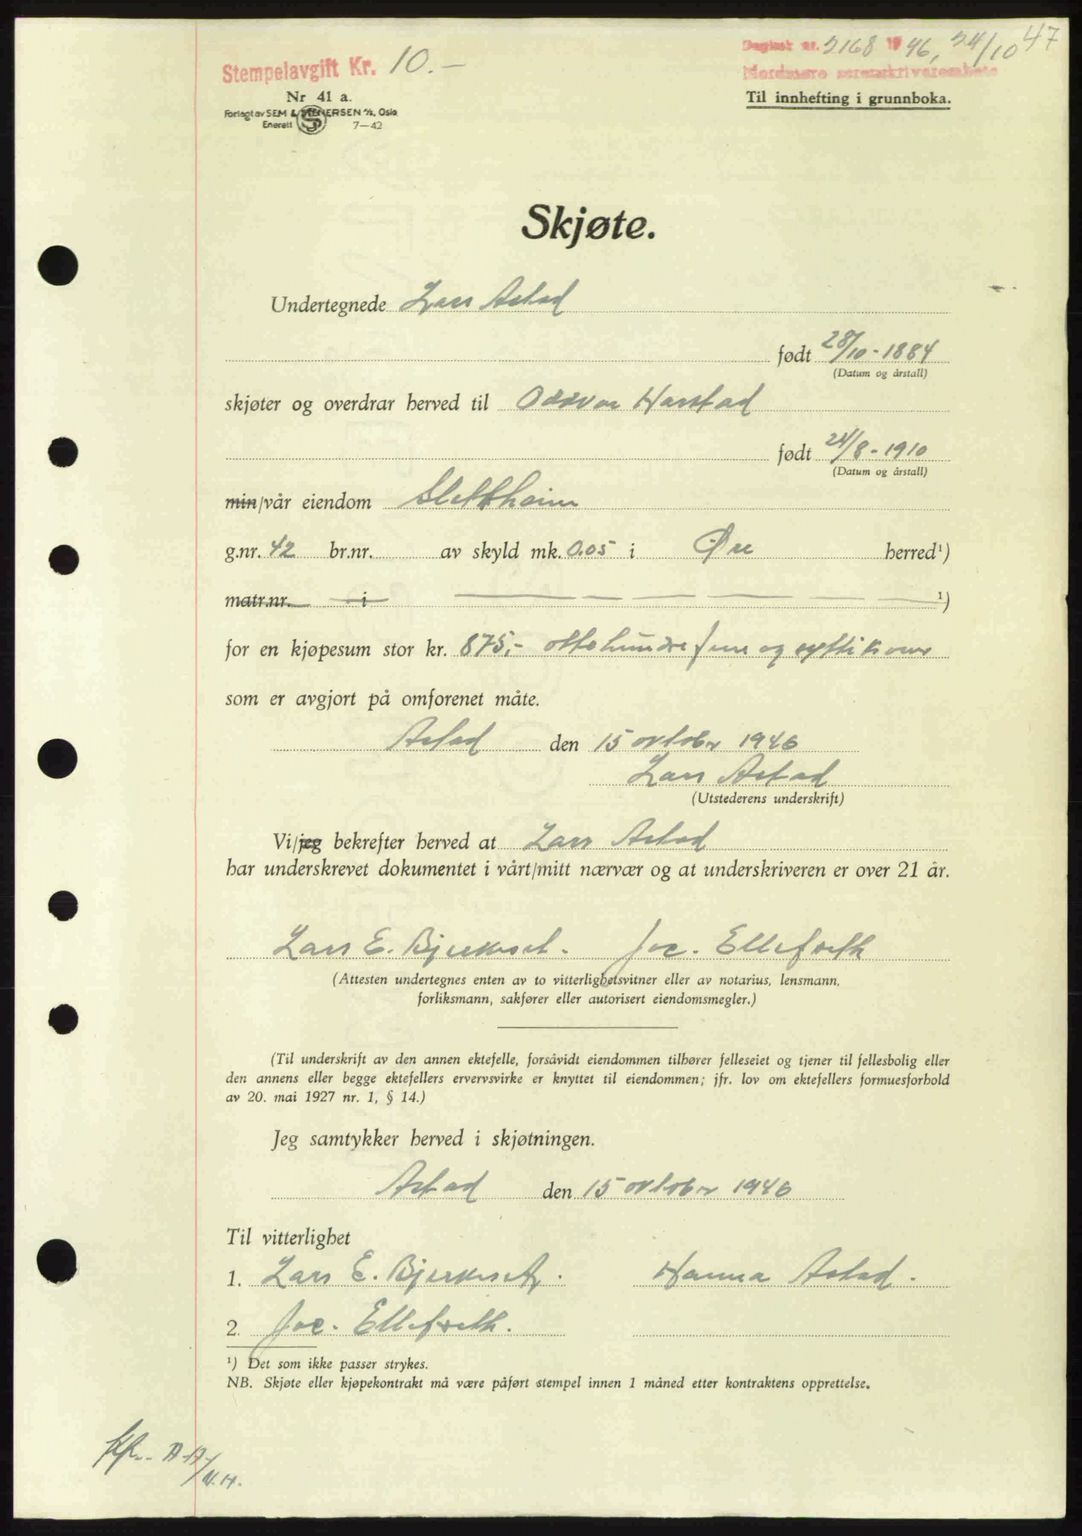 Stempelavgift Kr. 10.-
Nr 41 a.
Forlagt av SEM & STENERSEN A/S, Oslo
Enerett 7—42
Dagbok nr. 2168 1946, 24/10 47
Nordmøre sorenskriverembete
Til innhefting i grunnboka.
Skjøte.
Undertegnede Lars Astad
født 28/10-1884
(Datum og årstall)
skjøter og overdrar herved til Oddvar Harstad
født 24/8-1910
(Datum og årstall)
min/vår eiendom Slettheim
g.nr. 42 br.nr. av skyld mk. 0.05 i Øre herred¹)
matr.nr. i ¹)
for en kjøpesum stor kr. 875,- ottehundre fem og sytti kroner
som er avgjort på omforenet måte.
Astad den 15 oktober 1946
Lars Astad
(Utstederens underskrift)
Vi/jeg bekrefter herved at Lars Astad
har underskrevet dokumentet i vårt/mitt nærvær og at underskriveren er over 21 år.
Lars E. Bjerkeset. Joe. Ellefseth
(Attesten undertegnes enten av to vitterlighetsvitner eller av notarius, lensmann,
forliksmann, sakfører eller autorisert eiendomsmegler.)
(Til underskrift av den annen ektefelle, forsåvidt eiendommen tilhører felleseiet og tjener til fellesbolig eller
den annens eller begge ektefellers ervervsvirke er knyttet til eiendommen; jfr. lov om ektefellers formuesforhold
av 20. mai 1927 nr. 1, § 14.)
Jeg samtykker herved i skjøtningen.
Astad den 15 oktober 1946
Til vitterlighet
1. Lars E. Bjerkeset. Hanna Astad.
2. Joe. Ellefseth.
¹) Det som ikke passer strykes.
NB. Skjøte eller kjøpekontrakt må være påført stempel innen 1 måned etter kontraktens opprettelse.